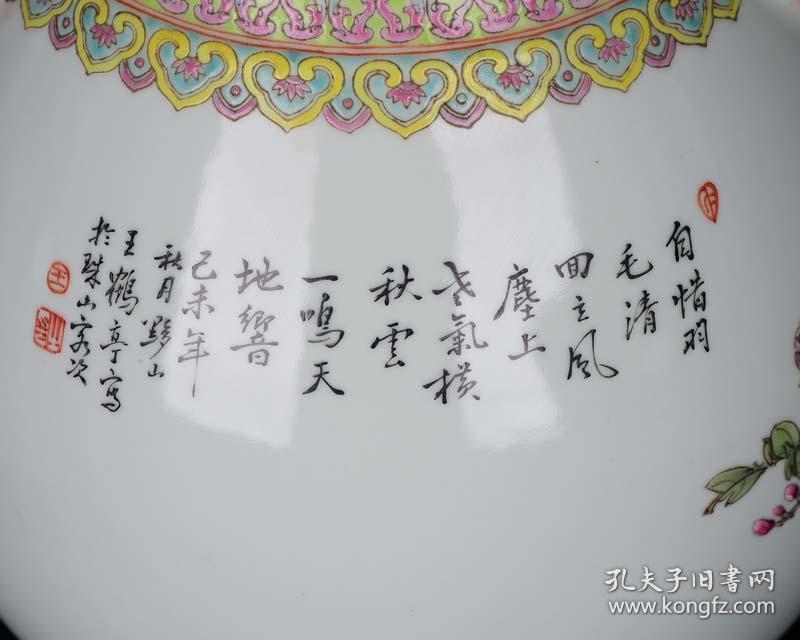 自惜羽
毛清
回立风
塵上
老氣横
秋雲
一鳴天
地響
己未年
秋月黟山
王鶴亭寫
於珠山客次
王
孔夫子旧书网
www.kongfz.com